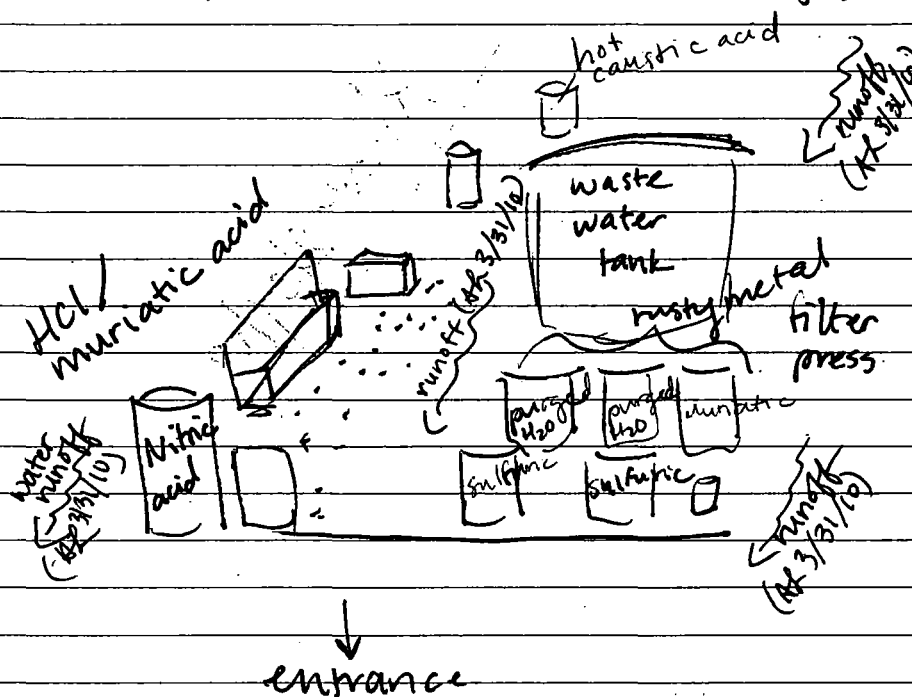 hot
caustic acid
runoff
(AL 3/31/10)
waste
water
tank
HCl/
muriatic acid
runoff (AL 3/31/10)
rusty metal
filter
press
purged
H2O
purged
H2O
muriatic
Nitric
acid
sulfuric
sulfuric
water
runoff
(AL 3/31/10)
runoff
(AL 3/31/10)
entrance